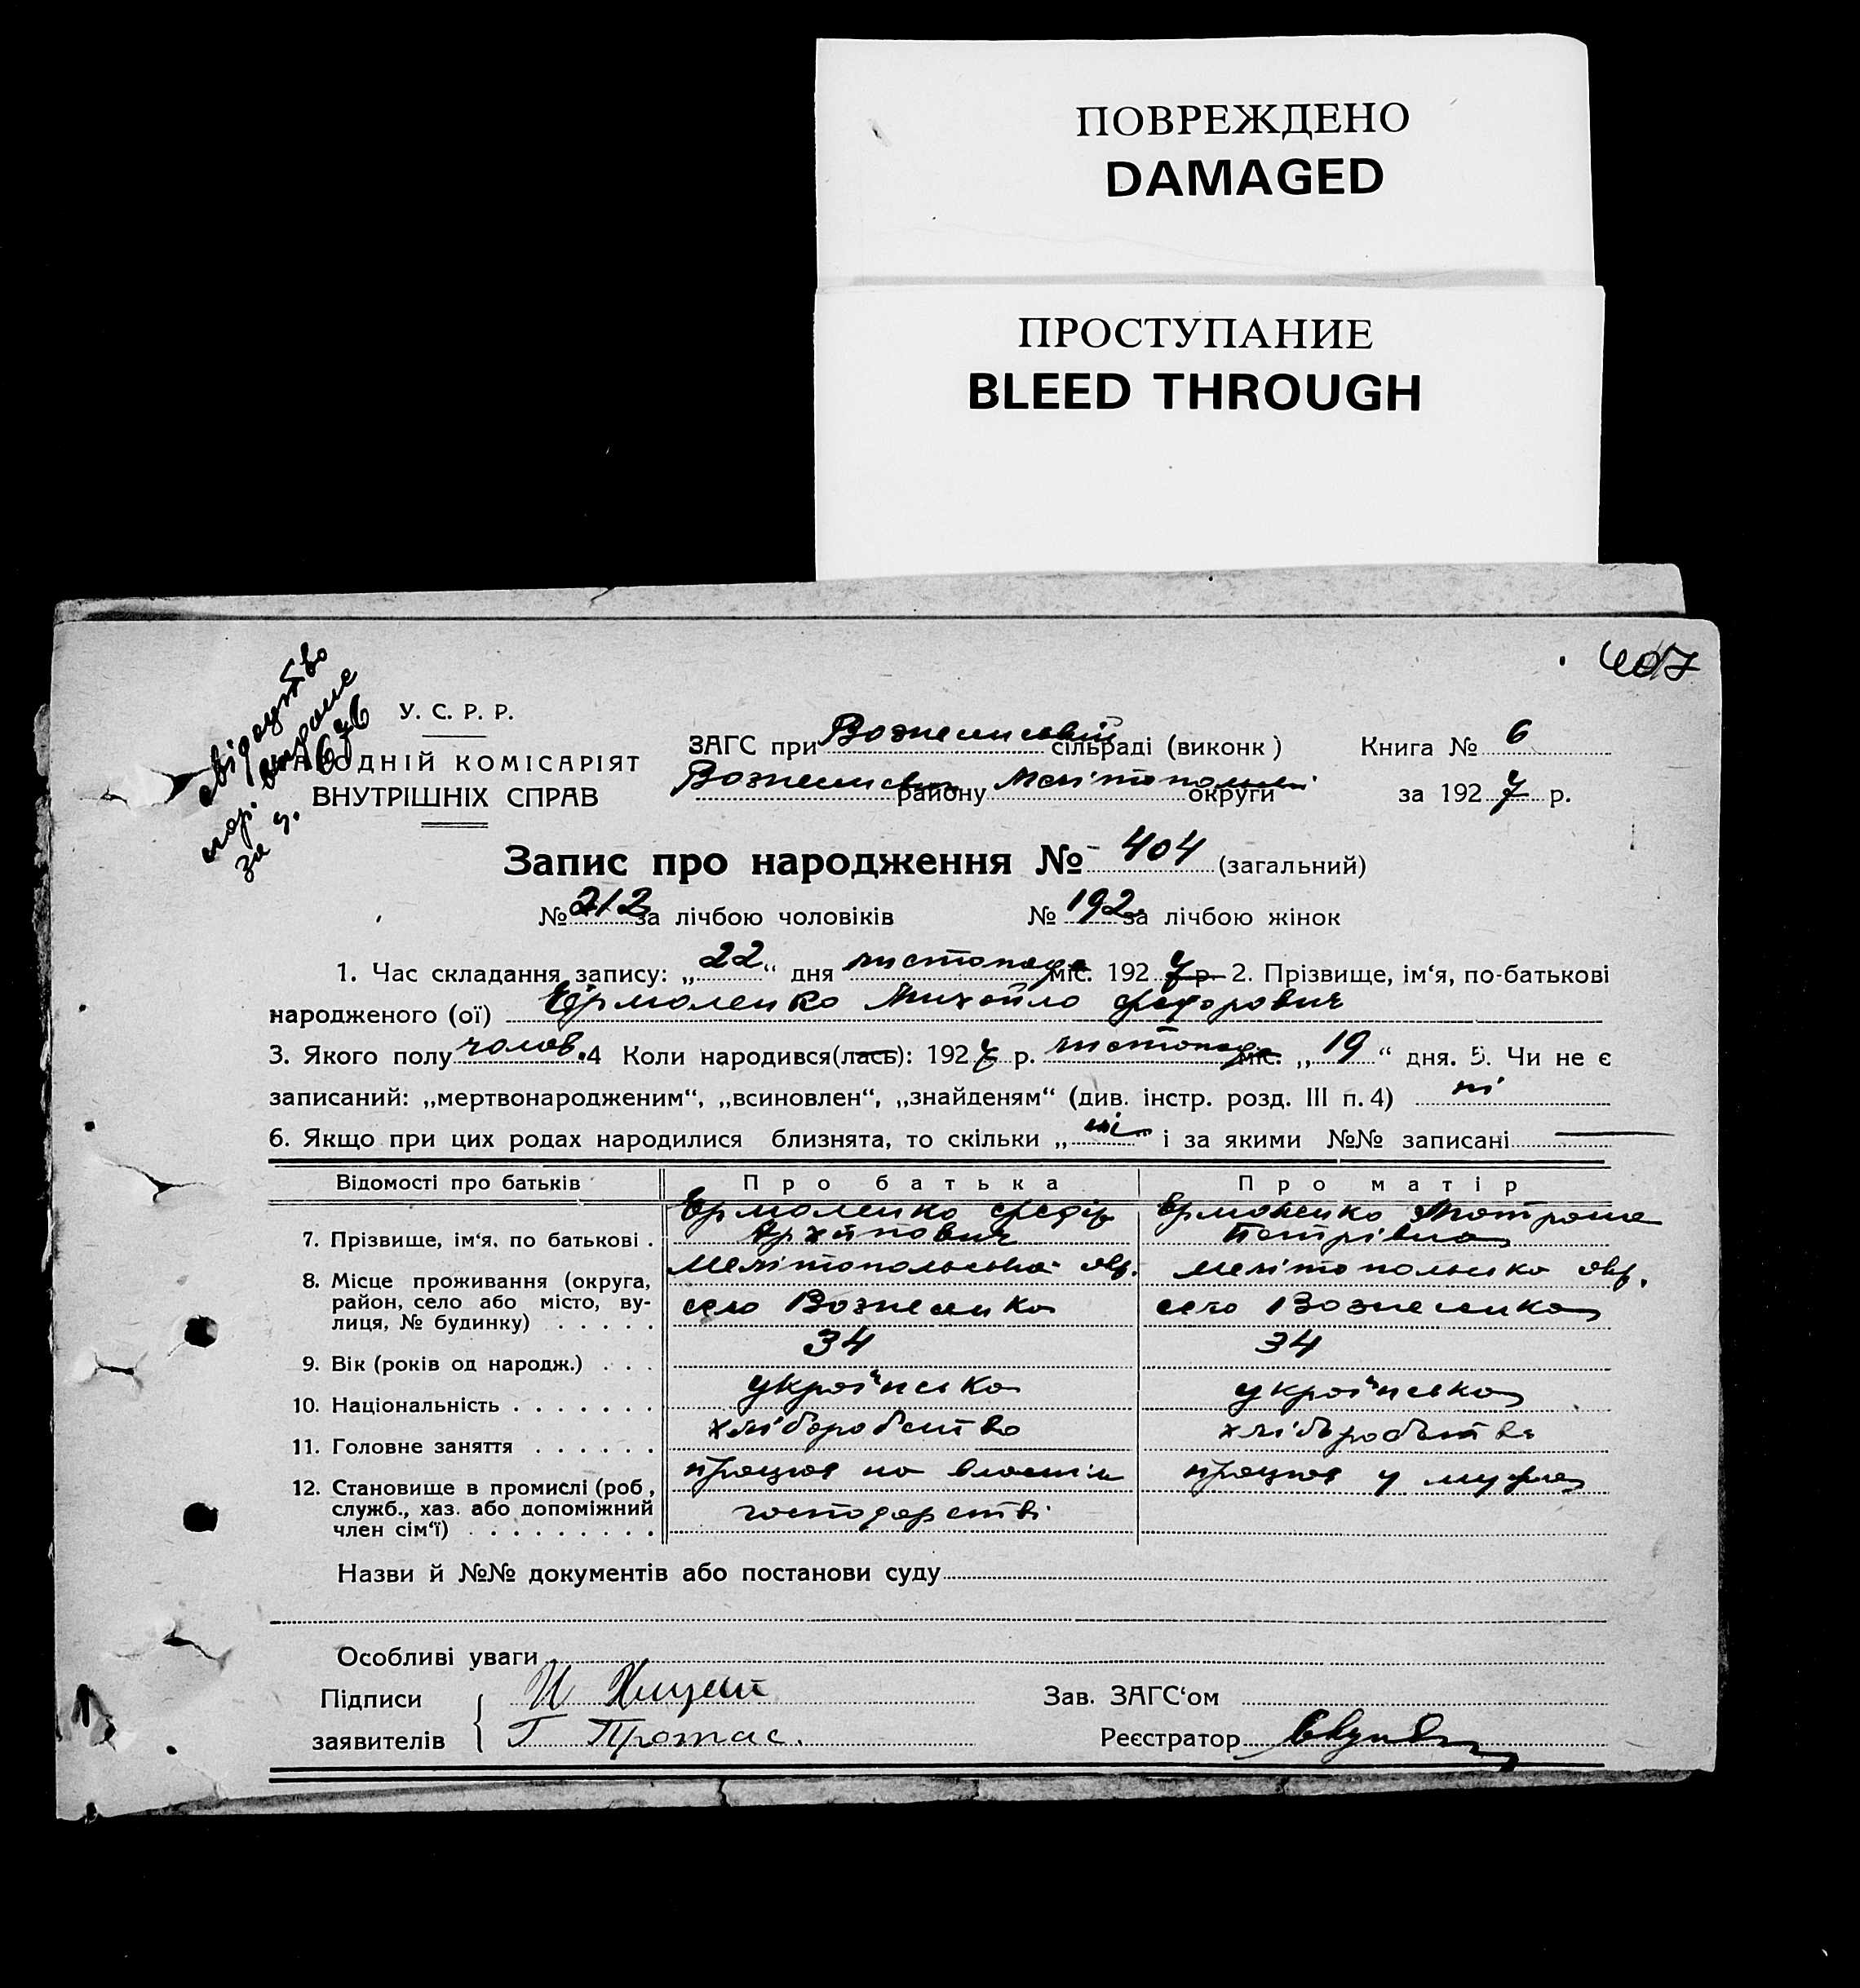 ПОВРЕЖДЕНО
DAMAGED
ПРОСТУПАНИЕ
BLEED THROUGH
407
свідоцтво
за ч. 676
У. С. Р. Р.
НАРОДНІЙ КОМІСАРІЯТ
ВНУТРІШНІХ СПРАВ
ЗАГС при Вознесенській сільраді (виконк) Книга № 6
Вознесенськ району Мелітопольскі округи за 1927 р.
Запис про народження № 404 (загальний)
№ 212 за лічбою чоловіків № 192 за лічбою жінок
1. Час складання запису: „22“ дня листопада міс. 1927 р. 2. Прізвище, ім‘я, по-батькові
народженого (ої) Єрмоленко Михайло Федорович
3. Якого полу чолов. 4 Коли народився(лась): 1927 р. листопада міс. „19“ дня. 5. Чи не є
записаний: „мертвонародженим“, „всиновлен“, „знайденям“ (див. інстр. розд. III п. 4) ні
6. Якщо при цих родах народилися близнята, то скільки „ні“ і за якими №№ записані —
Відомості про батьків Про батька Про матір
7. Прізвище, ім‘я, по батькові . Єрмоленко Федір Архипович Єрмоленко Мотрона Петрівна
8. Місце проживання (округа, Мелітопольська окр. Мелітопольско окр.
район, село або місто, ву- село Вознесенка село Вознесенка
лиця, № будинку) . . . . .
9. Вік (років од народж.) . . . 34 34
10. Національність . . . . . . . українська українська
11. Головне заняття . . . . . . хліборобство хліборобство
12. Становище в промислі (роб, працює на власнім працює у мужа
служб., хаз. або допоміжний господарстві
член сім‘ї) . . . . . . . . .
Назви й №№ документів або постанови суду
Особливі уваги
Підписи И Зав. ЗАГС‘ом
заявителів Г Протас. Реєстратор